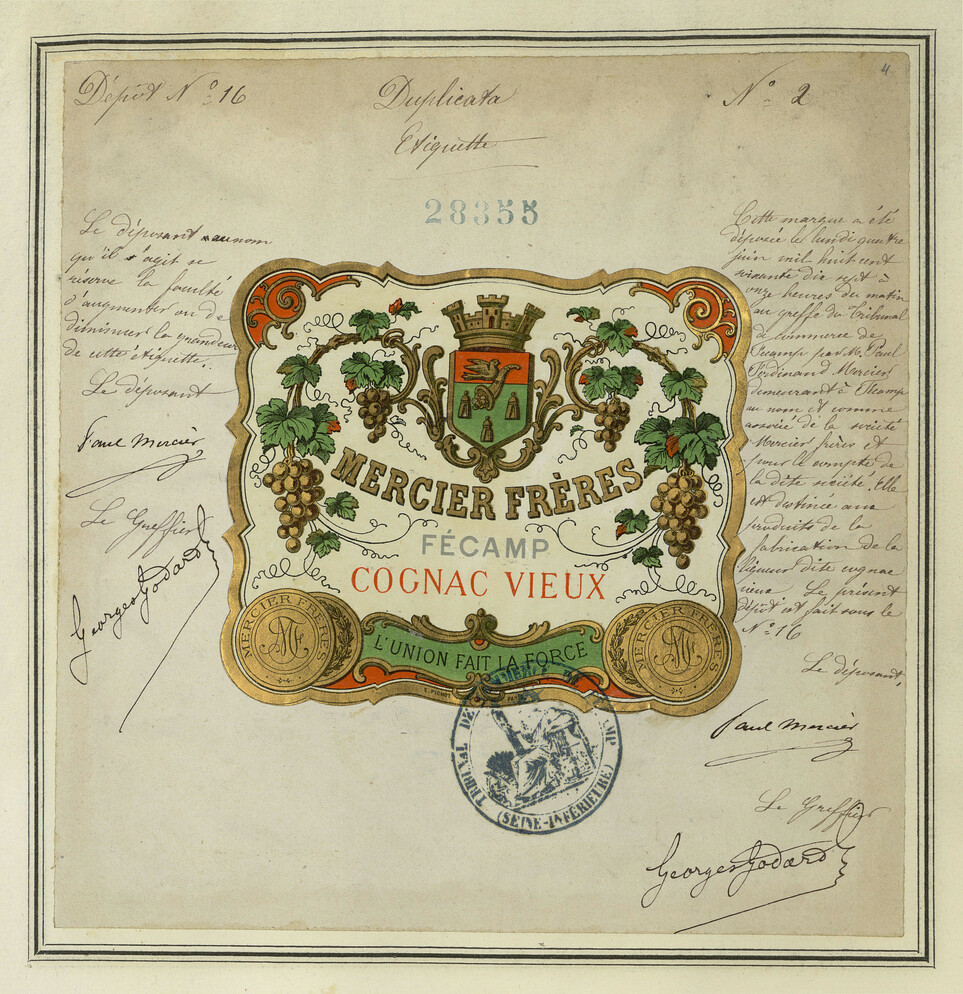 4
Dépôt Nº 16
Duplicata
Nº 2
Etiquette
28355
Le déposant au nom
qu'il agit se
réserve la faculté
d'augmenter ou de
diminuer la grandeur
de cette étiquette.
Le déposant
Paul Mercier
Le Greffier
Georges Godard
MERCIER FRÈRES
FÉCAMP
COGNAC VIEUX
MERCIER FRÈRES
L'UNION FAIT LA FORCE
MERCIER FRÈRES
TRIBUNAL DE
(SEINE-INFÉRIEURE)
Cette marque a été
déposée le lundi quatre
juin mil huit cent
soixante dix sept à
onze heures du matin
au greffe du Tribunal
de commerce de
Fécamp par M. Paul
Ferdinand Mercier
demeurant à Fécamp
au nom et comme
associé de la société
Mercier frères et
pour le compte de
la dite société. Elle
est destinée aux
produits de la
fabrication de la
liqueur dite cognac
vieux. Le présent
dépôt est fait sous le
Nº 16
Le déposant,
Paul Mercier
Le Greffier
Georges Godard